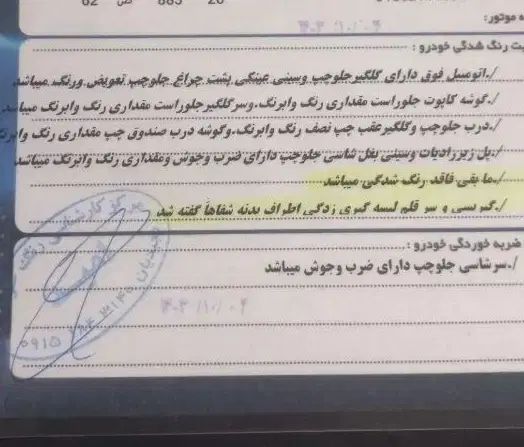 62 ص 885 20
ه موتور:
۱۴۰۳/۱۰/۰۴
یت رنگ شدگی خودرو :
/.اتومبیل فوق دارای گلگیرجلوچپ وسینی عینکی پشت چراغ جلوچپ تعویض ورنگ میباشد
/.گوشه کاپوت جلوراست مقداری رنگ وابرنگ.وسرگلگیرجلوراست مقداری رنگ وابرنگ میباشد
/.درب جلوچپ وگلگیرعقب چپ نصف رنگ وابرنگ.وگوشه درب صندوق چپ مقداری رنگ وابرنگ
/.پل زیررادیات وسینی بغل شاسی جلوچپ دارای ضرب وجوش ومقداری رنگ وابرنگ میباشد
/.ما بقی فاقد رنگ شدگی میباشد
/.گیربسی و سر قلم لیسه گیری زدگی اطراف بدنه شفاها گفته شد
ضربه خوردگی خودرو :
/.سرشاسی جلوچپ دارای ضرب وجوش میباشد
۱۴۰۳/۱۰/۰۴
مرکز کارشناسی
۰۹۱۵